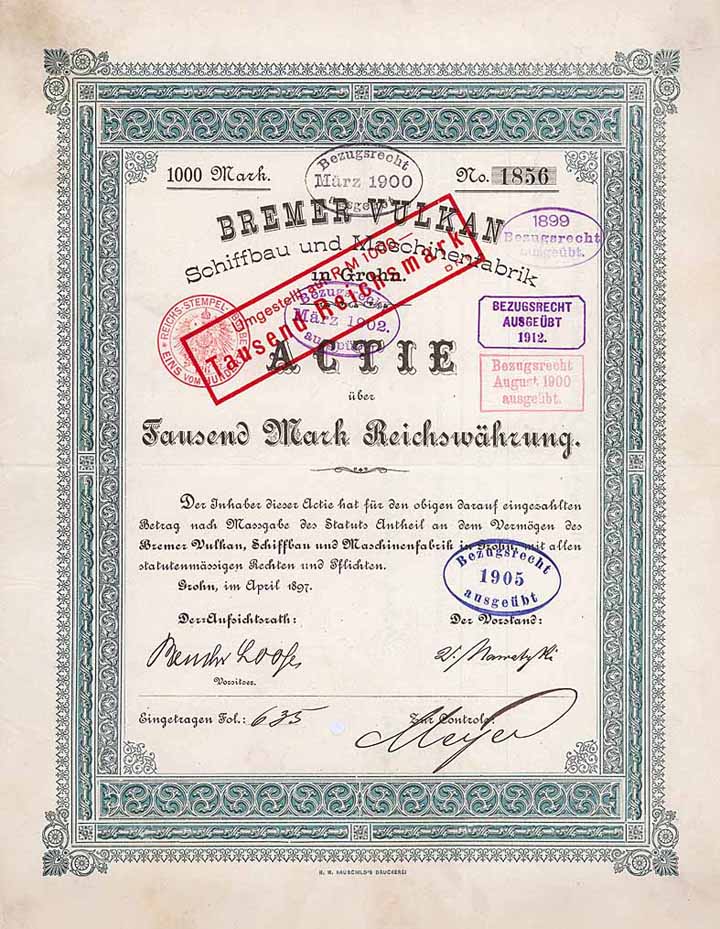 1000 Mark.
Bezugsrecht
März 1900
ausgeübt.
No. 1856
BREMER VULKAN
Schiffbau und Maschinenfabrik
in Grohn.
1899
Bezugsrecht
ausgeübt.
Umgestellt auf RM 1000
Tausend Reichsmark
REICHS-STEMPEL-ABGABE
EINS VOM HUNDERT
Bezugsrecht
März 1902.
ausgeübt
BEZUGSRECHT
AUSGEÜBT
1912.
Bezugsrecht
August 1900
ausgeübt.
ACTIE
über
Tausend Mark Reichswährung.
Der Inhaber dieser Actie hat für den obigen darauf eingezahlten
Betrag nach Massgabe des Statuts Antheil an dem Vermögen des
Bremer Vulkan, Schiffbau und Maschinenfabrik in Grohn, mit allen
statutenmässigen Rechten und Pflichten.
Grohn, im April 1897.
Bezugsrecht
1905
ausgeübt
Der Aufsichtsrath:
Der Vorstand:
Loose
V. Nawatzki
Vorsitzer.
Eingetragen Fol.: 635
Zur Controle:
Meyer
H. M. HAUSCHILD'S DRUCKEREI